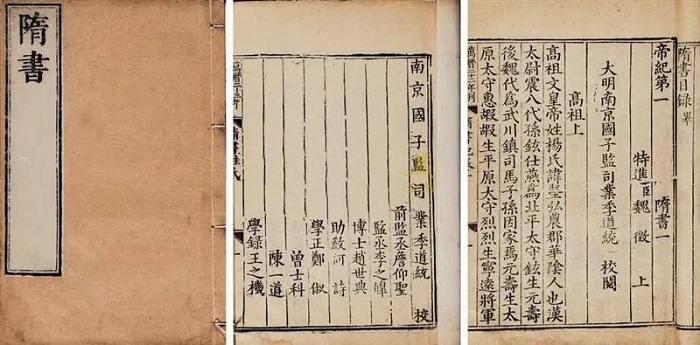 隋書
南京國子監司業季道統 校
前監丞詹仰聖
監丞李之皥
博士趙世典
助敎祁詩
學正鄭俶
曾士科
陳一道
學錄王之機
隋書目録 畢
帝紀第一 隋書一
特進臣魏徵 上
大明南京國子監司業季道統 校閱
高祖上
高祖文皇帝姓楊氏諱堅弘農郡華陰人也漢
太尉震八代孫鉉仕燕爲北平太守鉉生元壽
後魏代爲武川鎮司馬子孫因家焉元壽生太
原太守惠嘏嘏生平原太守烈烈生寧遠將軍